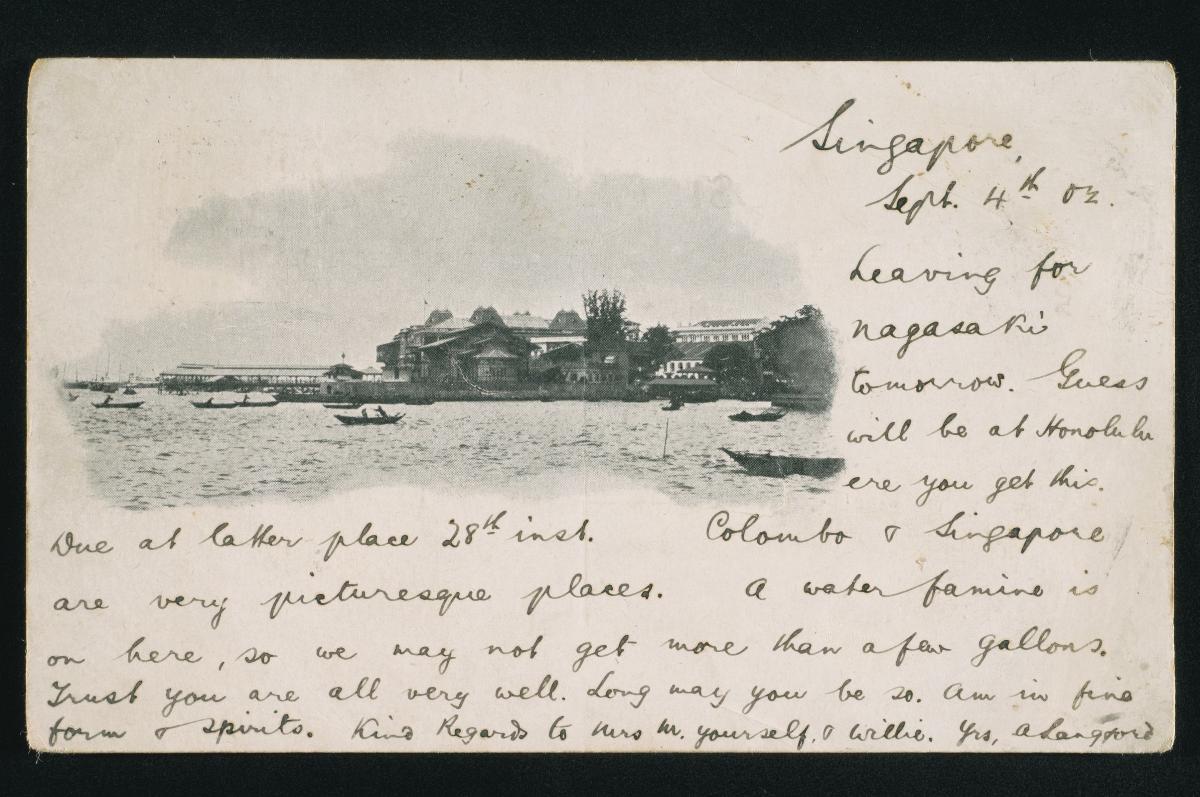 Singapore,
Sept. 4th 02.
Leaving for
Nagasaki
tomorrow. Guess
will be at Honolulu
ere you get this.
Due at latter place 28th inst. Colombo & Singapore
are very picturesque places. A water famine is
on here, so we may not get more than a few gallons.
Trust you are all very well. Long may you be so. Am in fine
form & spirits. Kind Regards to Mrs M. yourself, & Willie. Yrs, A Langford